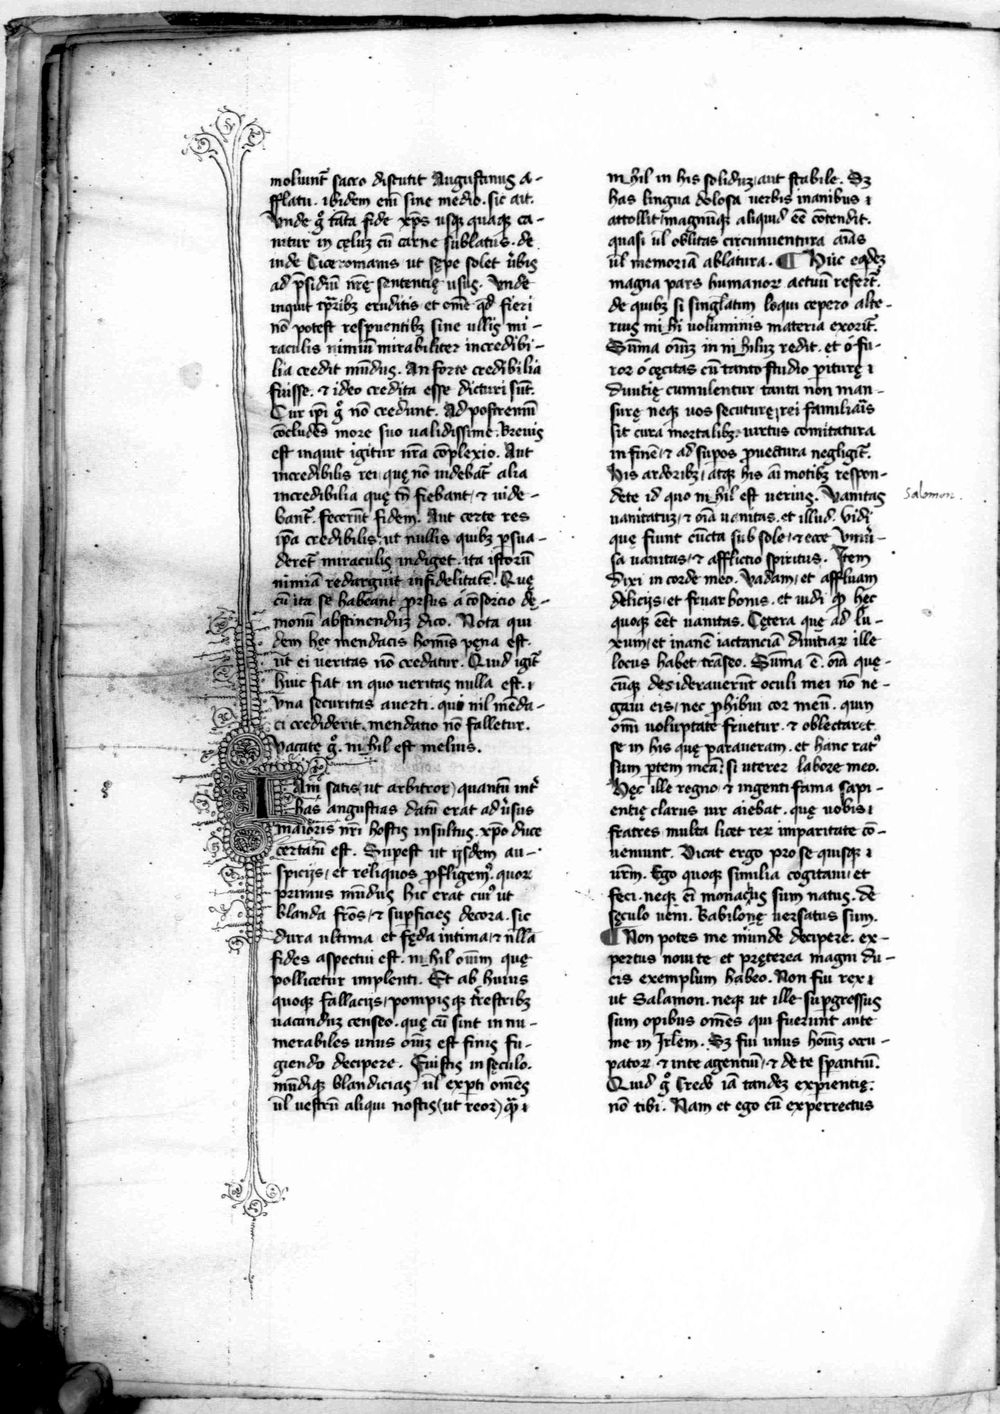 moliunt᷑ sacro discutit Augustinus a-
fflatu. ibidem em̄ sine medio. sic ait.
Vnde g̊ tāta fide xp̄s usq̨ quaq̨ ca-
nitur in cęluʒ cū carne sublatus. de
inde Ciceromanis ut sępe solet ūbis
ad p̄sidiū nr̄ę sententię usus. Vnde
inquit tp̄ribʒ eruditis et om̄e qd̄ fieri
nō potest respuentibʒ sine ullis mi-
raculis nimiū mirabiliter incredibi-
lia credit mūdus. An forte credibilia
fuisse. & ideo credita esse dicturi sūt.
Cur ip̄i g̊ nō credunt. Ad postremū
cōcludēs more suo validissime. Brevis
est inquit igitur nr̄a cōplexio. Aut
incredibilis rei, quę nō videbat᷑ alia
incredibilia quę tn̄ fiebant, & vide-
bant᷑. fecerūt fidem. Aut certe res
ip̄a credibilis, ut nullis quibʒ p̱sua-
deret᷑ miraculis indiget. ita istorū
nimiā redarguit infidelitatē. Quę
cū ita se habeant prorsus a cōsorcio dę-
monū abstinenduʒ dico. Nota qui
dem hęc mendacis hominis pęna est.
ut ei veritas nō credatur. Quid igit᷑
huic fiat in quo veritas nulla est.
Vna securitas averti. qui nil mēda-
ci crediderit. mendatio nō falletur.
Vacate g̊. nihil est melius.
Iam satis, ut arbitror, quantū int̄
has angustias datū erat ad v̄sus
maioris nr̄i hostis insultus. xp̄o duce
certatū est. Sup̱est ut ijsdem au-
spicijs, et reliquos p̱fligem᷒. quor
primus mūdus hic erat cui᷒ ut
blanda frōs, & sup̱ficies decora. sic
dura ultima et fęda intima, & nulla
fides aspectui est. nihil om̄ium quę
pollicetur implenti. Et ab huius
quoq̨ fallacijs, pompisq̨ tr̄estribʒ
vacanduʒ censeo. quę cū sint innu-
merabiles unus om̄iʒ est finis fu-
giendo decipere. Fuistis in sęculo.
mūdiq̨ blandicias, ūl exp̱ti om̄es
ūl vestrū aliqui nostis (ut reor) q̄
nihil in his soliduʒ, aut stabile. Sʒ
has lingua dolosa verbis inanibus
attollit, magnūq̨ aliquid eē cōtendit.
quasi ūl oblitas circumventura aīas
ūl memoriā ablatura. ¶ Huc eądeʒ
magna pars humanor actuū refert᷑.
de quibʒ si singlatim loqui cepero alte-
rius mihi voluminis materia exorit᷑.
Sūma om̄iʒ in nihiluʒ redit. et ó fu-
ror ó cęcitas cū tanto studio p̱iturę
divitię cumulentur tanta non man-
surę neq̨ vos secuturę rei familiaris
sit cura mortalibʒ. virtus comitatura
in finē, & ad sup̱os p̱vectura negligit᷑.
His ardoribʒ, atq̨ his aī motibʒ respon-
dete id quo nihil est verius. Vanitas
Salomon.
vanitatuʒ, & oīa vanitas. et illud. Vidi
quę fiunt cūcta sub sole, & ecce Univ̄-
sa vanitas, & afflictio spiritus. Item
dixi in corde meo. Vadam, et affluam
delicijs, et fruar bonis. et vidi q̱ hęc
quoq̨ eēt vanitas. Cętera quę ad lu-
xum, et inanē iactanciā divitiar ille
locus habet trāseo. Sūma ē. oīa quę-
cūq̨ desideraverūt oculi mei nō ne-
gavi eis, nec p̱hibui cor meū. quin
om̄i voluptate frueretur. & oblectaret
se in his quę paraveram. et hanc rat᷒
sum p̱tem meā, si uterer labore meo.
Hęc ille regno, & ingenti fama sapi-
entię clarus vir aiebat. quę vobis
fratres multa licet rer imparitate cō-
veniunt. Dicat ergo pro se quisq̨
vr̄m. Ego quoq̨ similia cogitavi, et
feci. neq̨ eī monachus sum natus. de
sęculo veni. Babilonę versatus sum.
¶ Non potes me mūnde decipere. ex-
pertus novi te et pręterea magni du-
cis exemplum habeo. Non fui rex
ut Salamon. neq̨ ut ille sup̱gressus
sum opibus om̄es qui fuerunt ante
me in Irlem. Sʒ fui unus hom̄iʒ occu-
pator, & in te agentiū, & de te sp̱antiū.
Quid g̊ Credo iā tandeʒ exp̱ientię.
nō tibi. Nam et ego cū experrectus